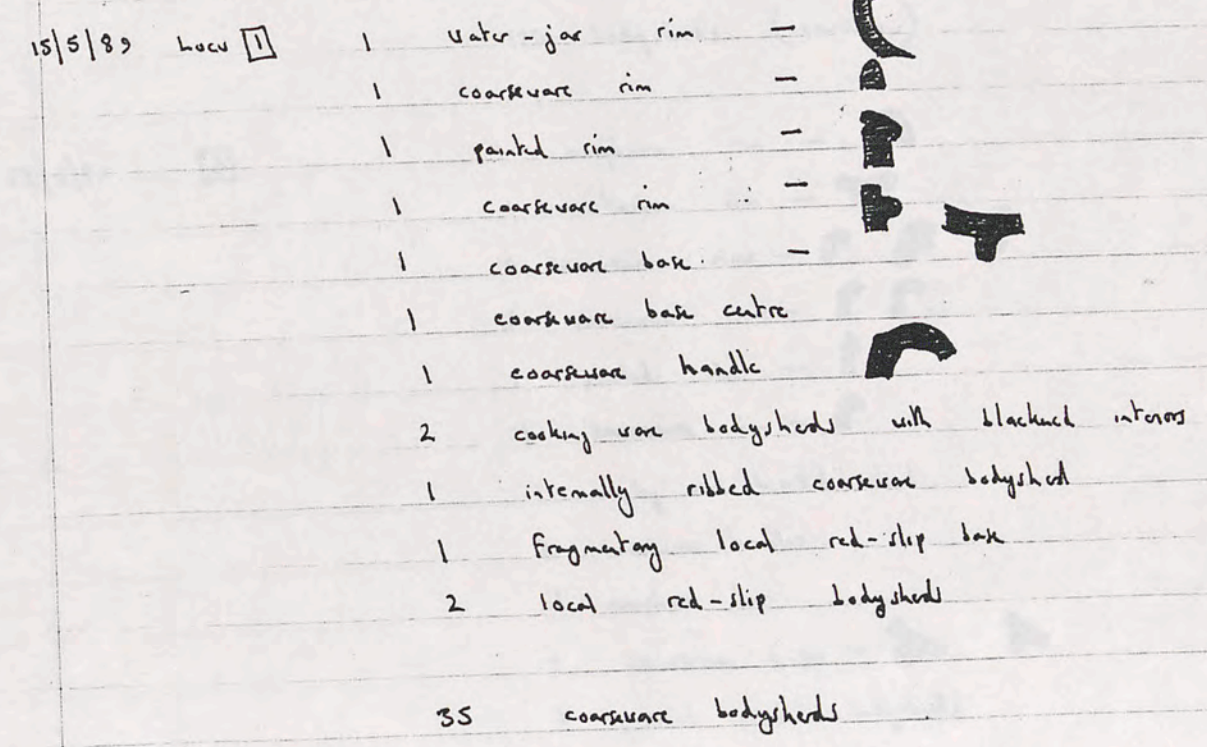 15/5/89 Locu 1 1 water-jar rim —
1 coarseware rim —
1 painted rim —
1 coarseware rim —
1 coarseware base. —
1 coarseware base centre
1 coarseware handle
2 cooking ware bodysherds with blackened interiors
1 internally ribbed coarseware bodysherd
1 fragmentary local red-slip base
2 local red-slip bodysherds
35 coarseware bodysherds